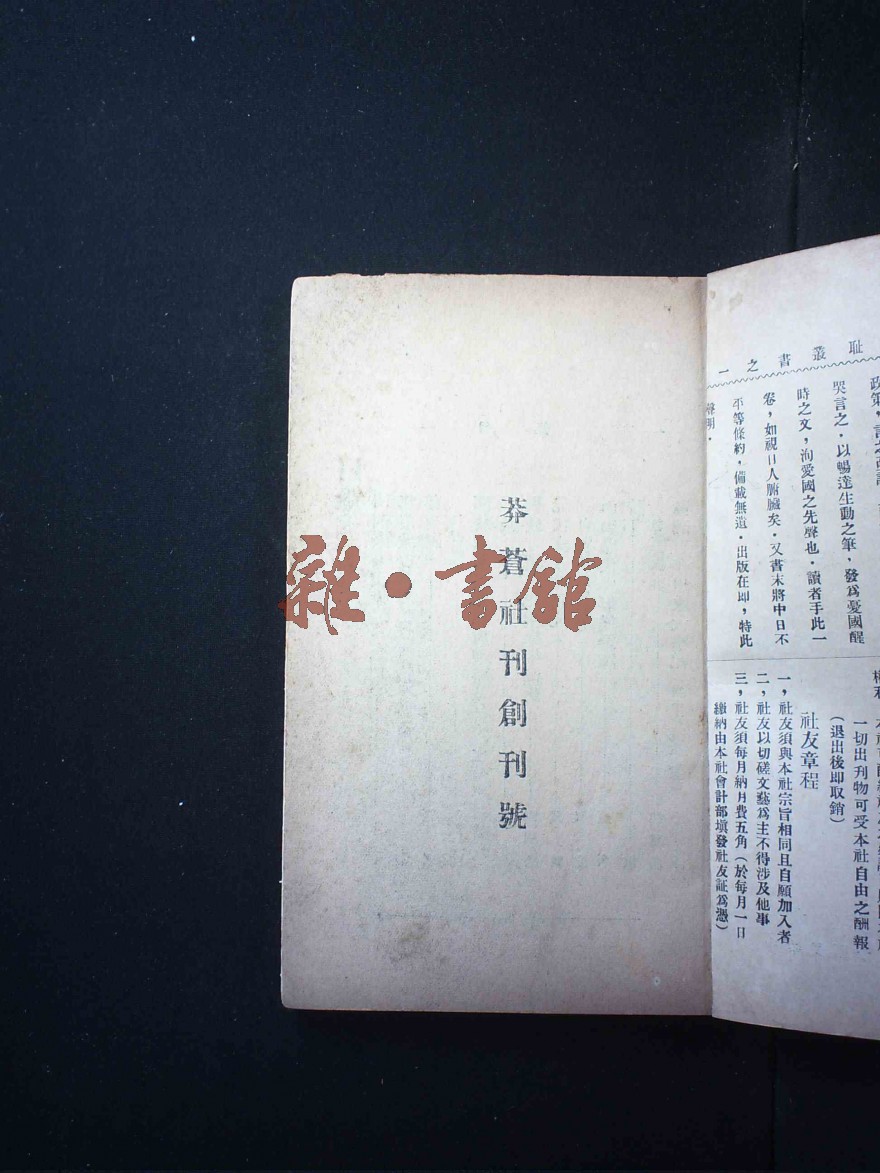 莽蒼社刊創刊號
雜·書館
耻叢書之一
哭言之．以暢達生動之筆，發爲憂國醒
時之文，洵愛國之先聲也．讀者手此一
卷，如視日人腑臟矣．又書末將中日不
平等條約，備載無遺．出版在即，特此
聲明．
一切出刊物可受本社自由之酬報
（退出後即取銷）
社友章程
一，社友須與本社宗旨相同且自願加入者
二，社友以切磋文藝爲主不得涉及他事
三，社友須每月納月費五角（於每月一日
繳納由本社會計部塡發社友証爲憑）